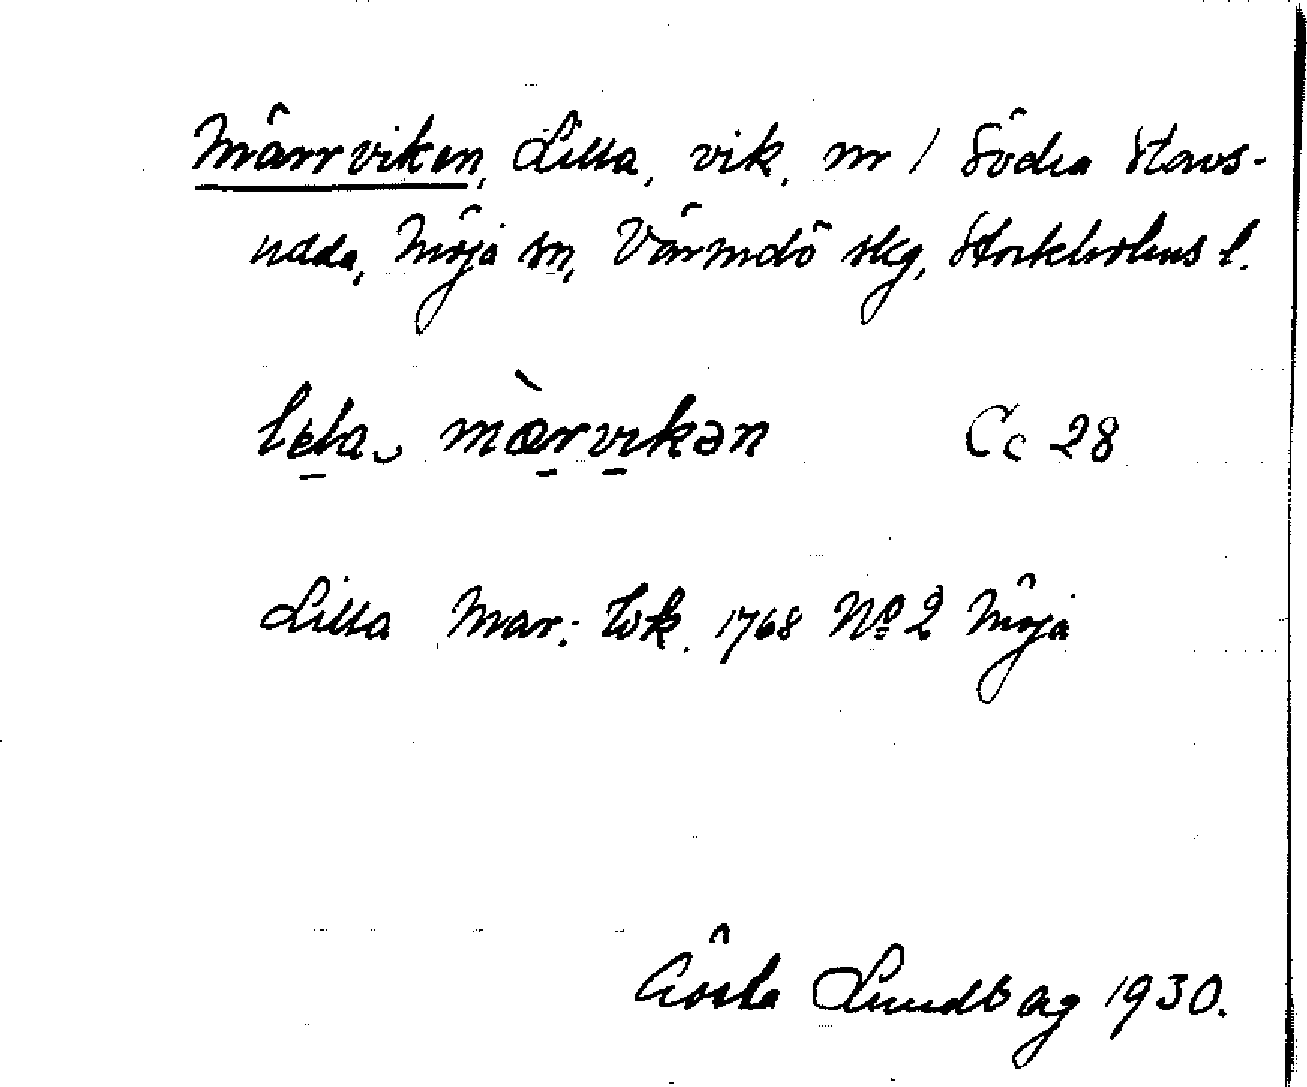 Märrviken, Lilla, vik, nr 1 Södra Stavs-
udda, Möja sn, Värmdö skg, Stockholms l.
lela mærvikən Cc 28
Lilla Mar: Wk. 1768 No 2 Möja
Gösta Lundberg 1930.